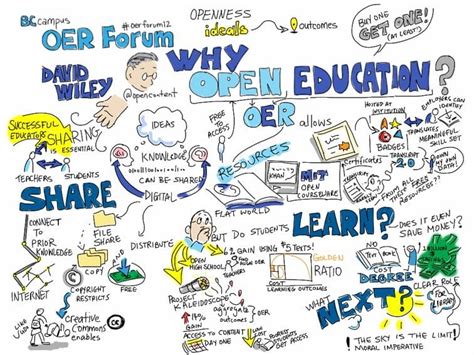 BCcampus
#oerforum12
OER Forum
DAVID
WILEY
@opencontent
OPENNESS
ideals
outcomes
BUY ONE
GET ONE!
(AT LEAST!)
WHY
OPEN EDUCATION?
OER allows
FREE
TO
ACCESS
HOSTED AT
INSTITUTION
BADGES
EMPLOYERS CAN
IDENTIFY
TRANSLATES
MEANINGFUL
SKILL SET
Certificates
TRANSCRIPT
2.0
OWN
MY OWN
DATA!
FROM ALL
FREE
RESOURCES??
SUCCESSFUL
EDUCATORS
SHARING
IS ESSENTIAL
TEACHERS
STUDENTS
IDEAS
KNOWLEDGE
CAN BE SHARED
DIGITAL
RESOURCES
KHAN
MIT
OPEN
COURSEWARE
FLAT WORLD
SHARE
CONNECT
TO
PRIOR
KNOWLEDGE
INTERNET
FILE
SHARE
COPY
COPYRIGHT
RESTRICTS
FREE
DISTRIBUTE
LIKE
JUMP
creative
commons
enables
cc
BUT DO STUDENTS
LEARN?
OPEN
HIGH SCHOOL
GAIN USING $5 TEXTS!
GOLDEN
RATIO
COST
LEARNING OUTCOMES
PROJECT
KALEIDOSCOPE
aggregate
outcomes
GAIN
ACCESS TO CONTENT
DAY ONE
DOES IT EVEN
SAVE MONEY?
COST
DEGREE
WHAT
NEXT?
CLEAR ROLE
FOR
LIBRARY
THE SKY IS THE LIMIT
MORAL IMPERATIVE